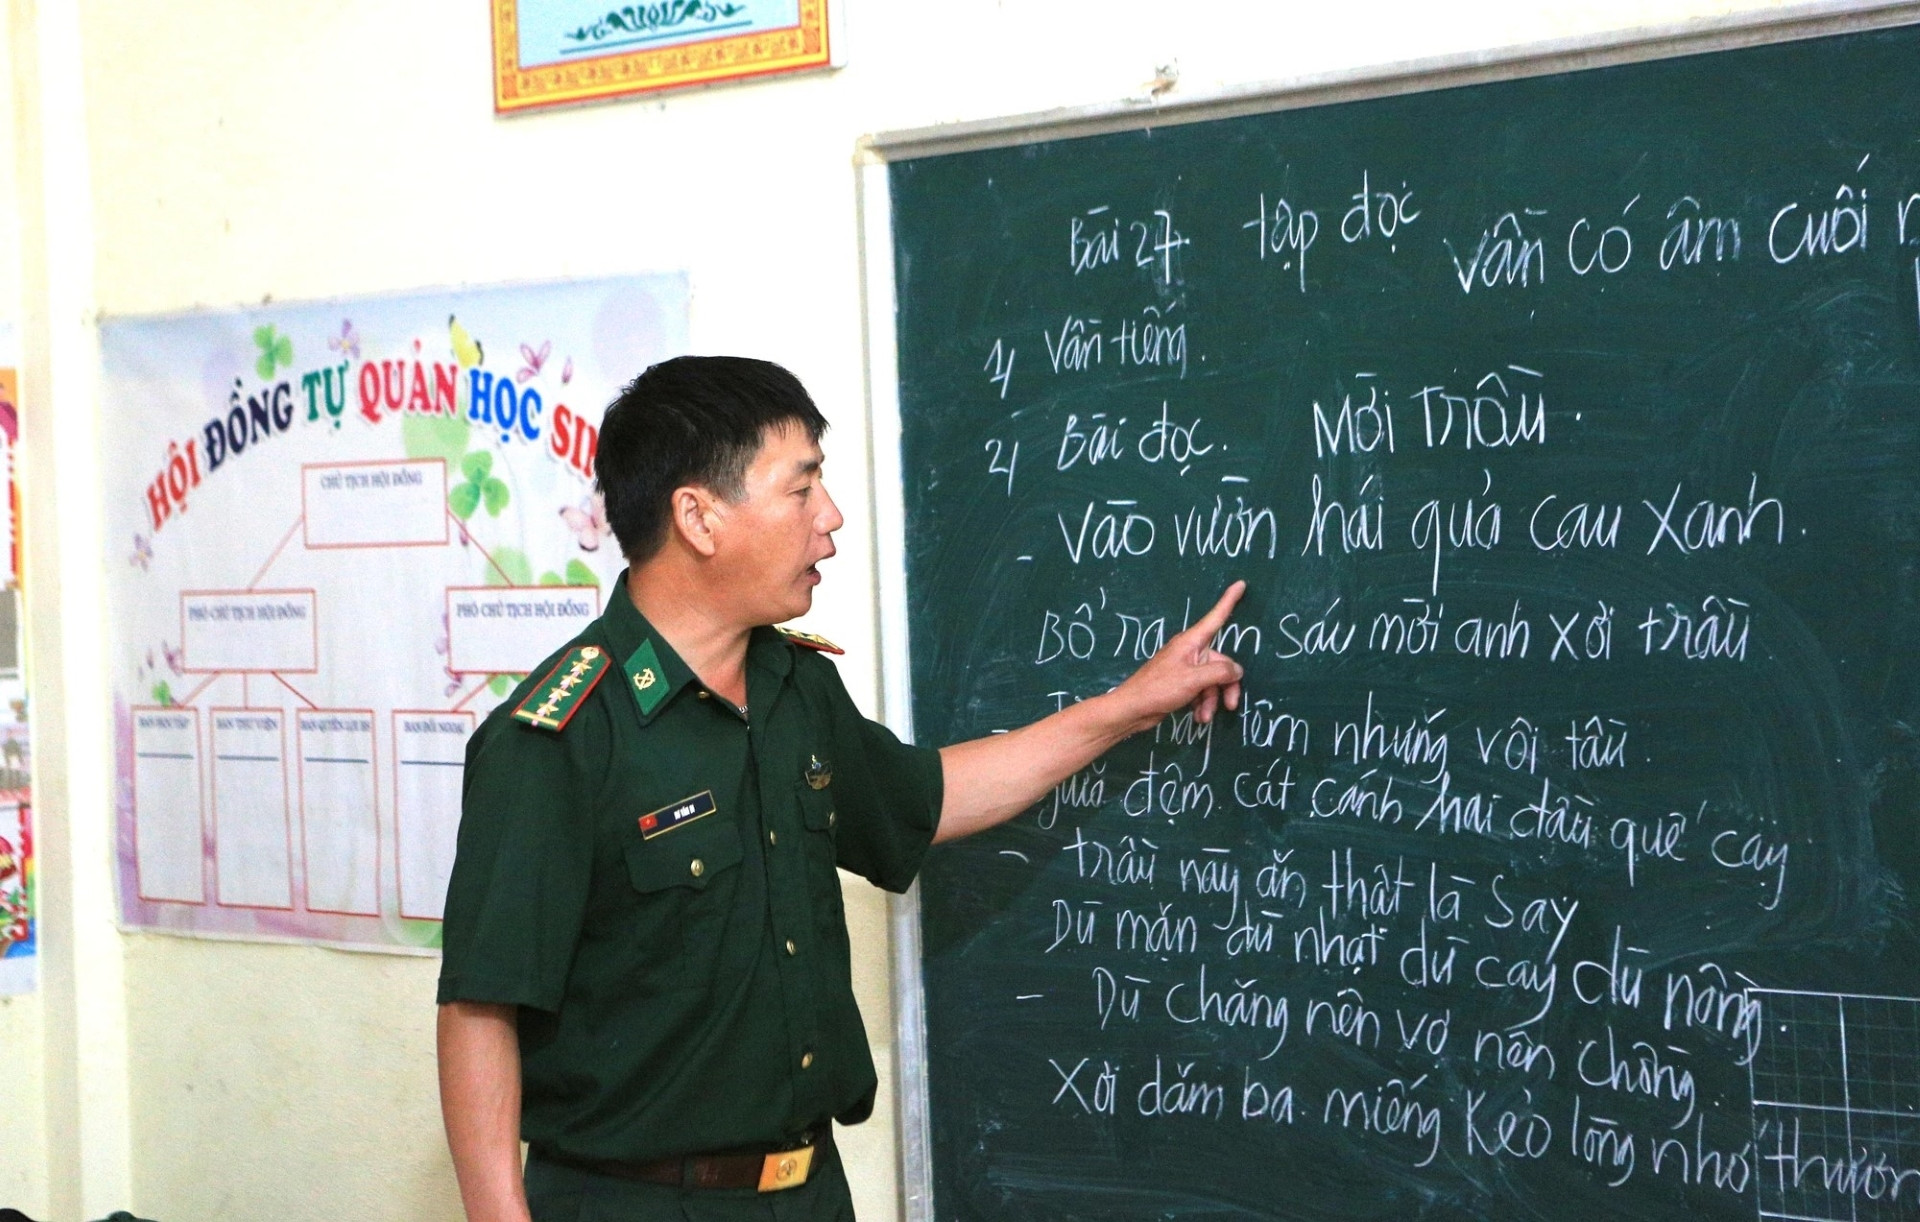 HỘI ĐỒNG TỰ QUẢN HỌC
CHỦ TỊCH HỘI ĐỒNG
PHÓ CHỦ TỊCH HỘI ĐỒNG
PHÓ CHỦ TỊCH HỘI ĐỒNG
BAN HỌC TẬP
BAN THƯ VIỆN
BAN QUYỀN LỢI HS
BAN ĐỐI NGOẠI
Bài 27 tập đọc vần có âm cuối
1/ Vần tiếng.
2/ Bài đọc. Mời Trầu.
- Vào vườn hái quả cau xanh.
Bổ ra làm sáu mời anh xơi trầu
têm những vôi tàu.
giữa đệm cát cánh hai đầu quế cay
- trầu này ăn thật là say
Dù mặn dù nhạt dù cay dù nồng.
- Dù chẳng nên vợ nên chồng.
Xơi dăm ba miếng kẻo lòng nhớ thương